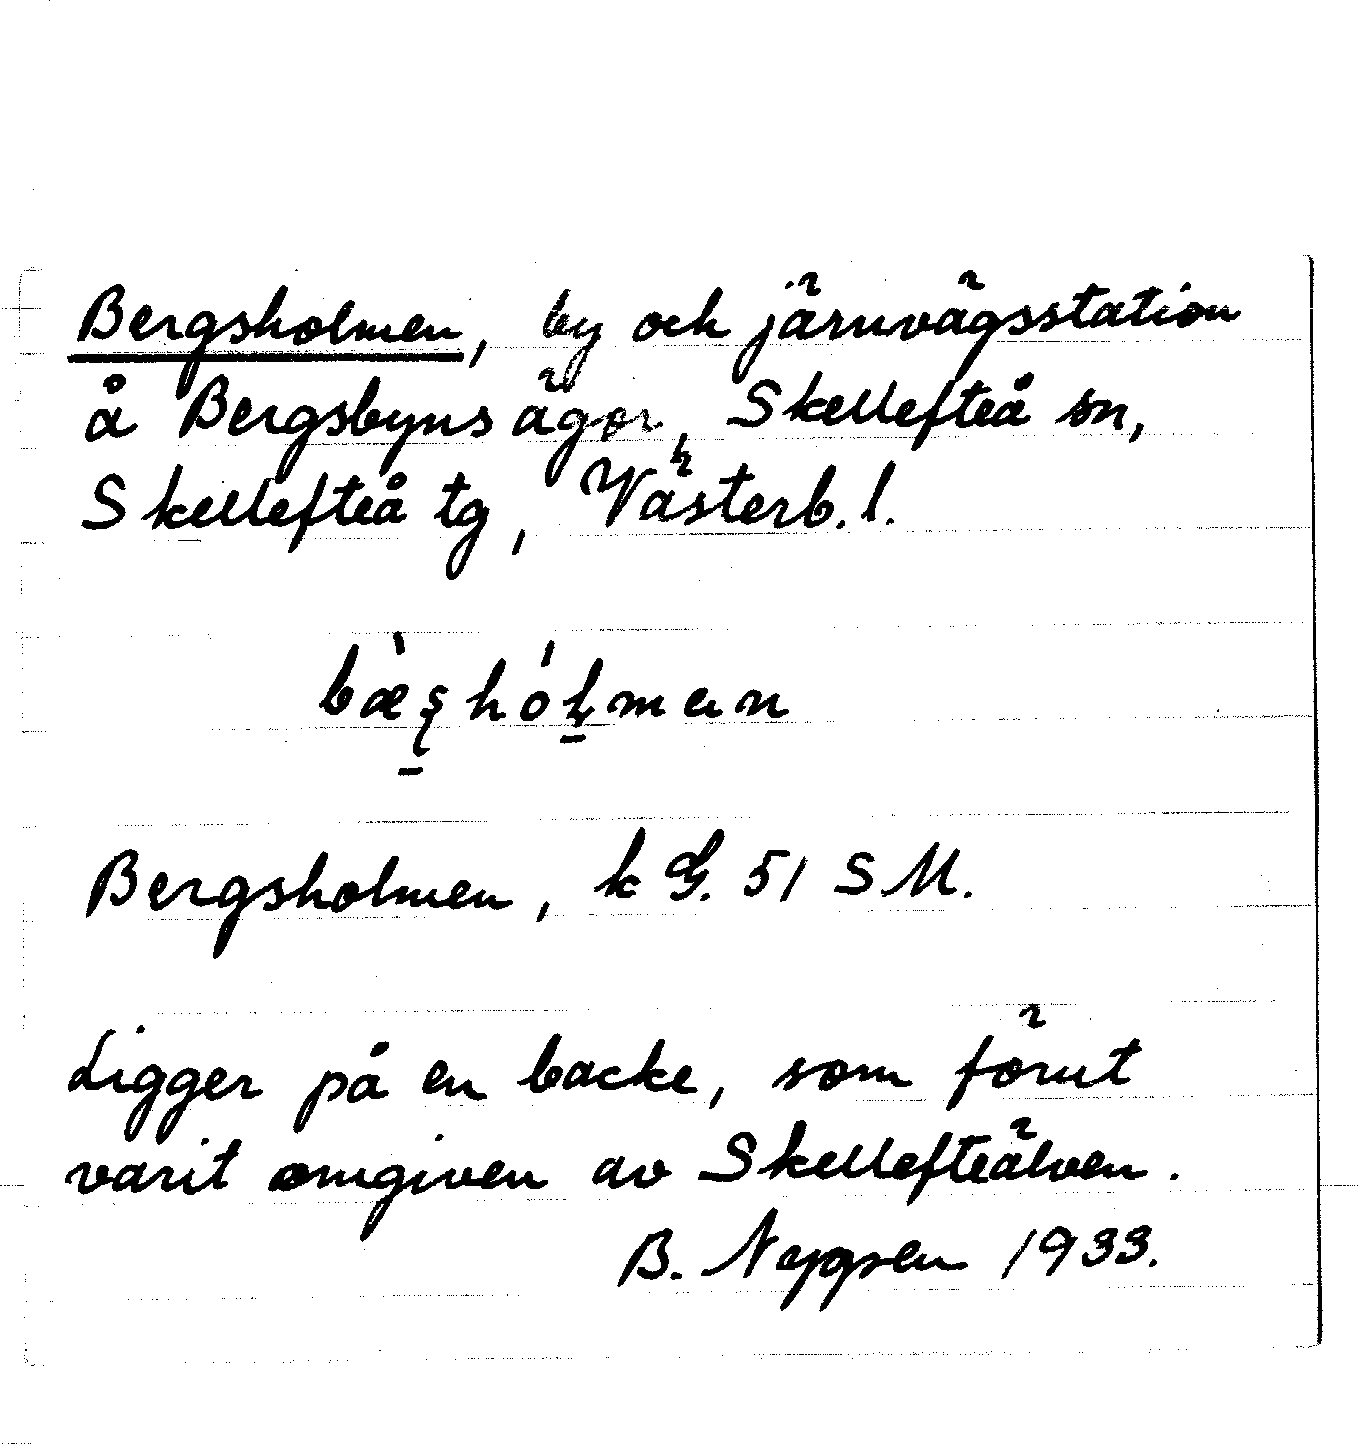 Bergsholmen, by och järnvägsstation
å Bergsbyns ägor, Skellefteå sn,
Skellefteå tg, Västerb. l.
Bergsholmen, kG. 51 SM.
Ligger på en backe, som förut
varit omgiven av Skellefteälven.
B. 1933.